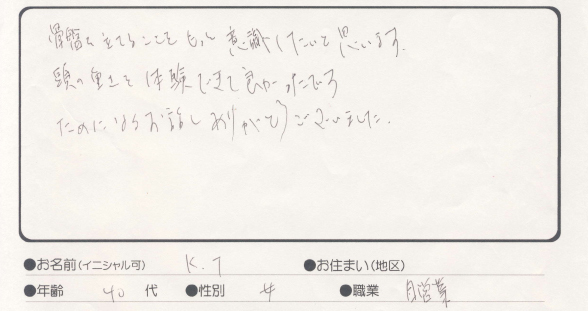 骨盤を立てることをもっと意識したいと思います。
頭の重さを体験できて良かったです
ためになるお話しありがとうございました。
●お名前(イニシャル可) K.T ●お住まい(地区)
●年齢 40代 ●性別 女 ●職業 自営業